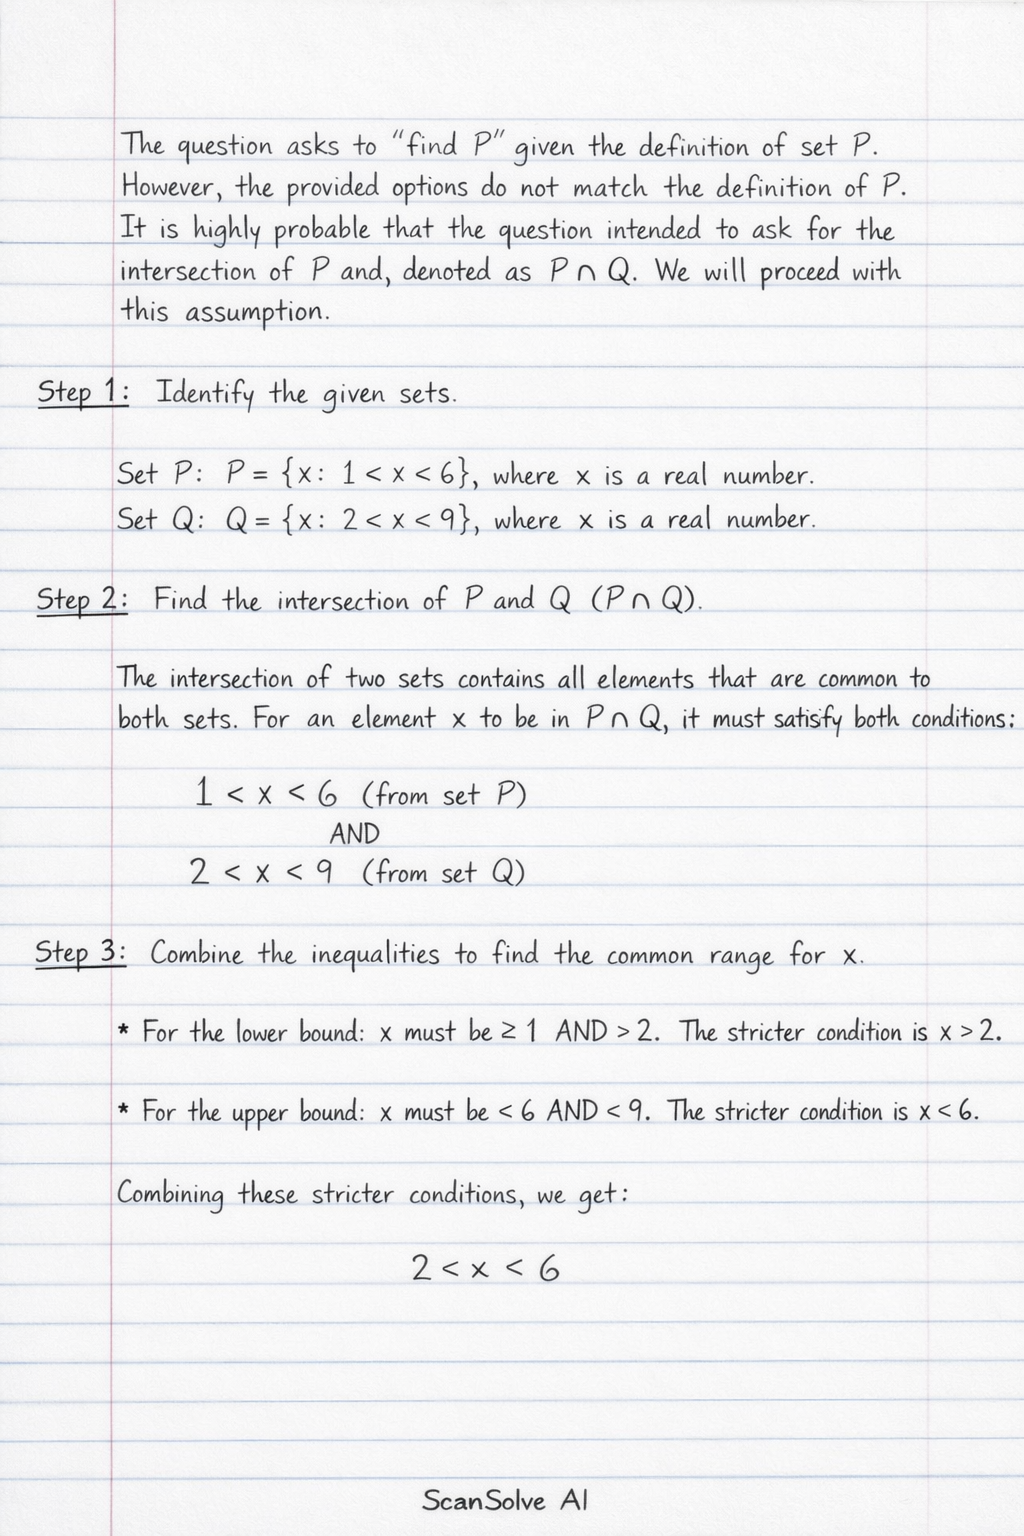 The question asks to “find P” given the definition of set P.
However, the provided options do not match the definition of P.
It is highly probable that the question intended to ask for the
intersection of P and, denoted as P ∩ Q. We will proceed with
this assumption.
Step 1: Identify the given sets.
Set P: P = {x: 1 < x < 6}, where x is a real number.
Set Q: Q = {x: 2 < x < 9}, where x is a real number.
Step 2: Find the intersection of P and Q (P ∩ Q).
The intersection of two sets contains all elements that are common to
both sets. For an element x to be in P ∩ Q, it must satisfy both conditions:
1 < x < 6 (from set P)
AND
2 < x < 9 (from set Q)
Step 3: Combine the inequalities to find the common range for x.
* For the lower bound: x must be ≥ 1 AND > 2. The stricter condition is x > 2.
* For the upper bound: x must be < 6 AND < 9. The stricter condition is x < 6.
Combining these stricter conditions, we get:
2 < x < 6
ScanSolve AI